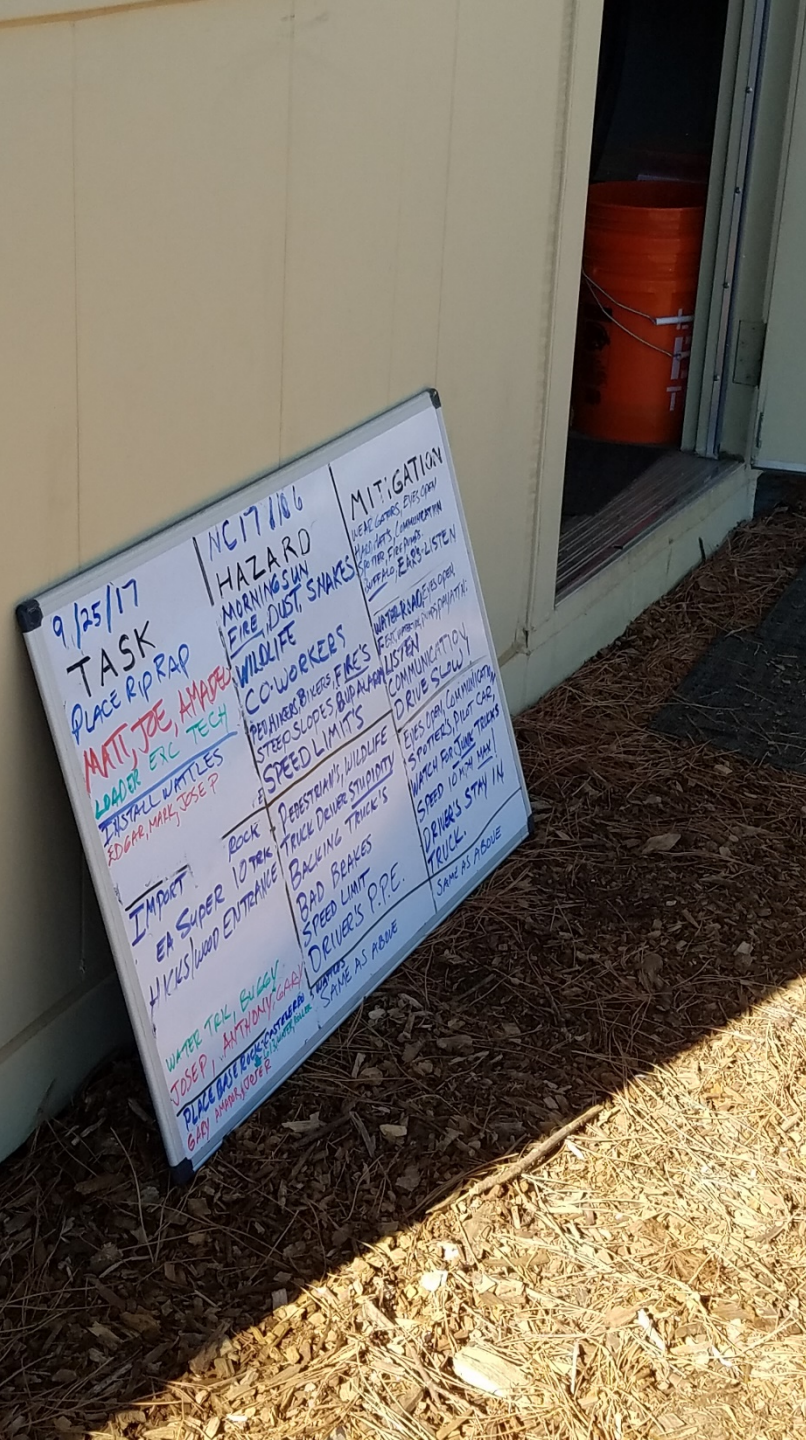 9/25/17
TASK
PLACE RIP RAP
MATT, JOE, AMADEO
LOADER EXC TECH
INSTALL WATTLES
EDGAR, MARK, JOSE P
IMPORT ROCK
EA SUPER 10 TRK
HICKS/WOOD ENTRANCE
WATER TRK, BUGGY
JOSE P, ANTHONY, GARY
PLACE BASE ROCK
GARY, AMADOR,
HAZARD
MORNING SUN
FIRE, DUST, SNAKES
WILDLIFE
CO-WORKERS
BIKERS, FIRE'S
STEEP SLOPES, BUP ALARM
SPEED LIMIT'S
PEDESTRIAN'S, WILDLIFE
TRUCK DRIVER STUPIDITY
BACKING TRUCK'S
BAD BRAKES
SPEED LIMIT
DRIVER'S P.P.E.
SAME AS ABOVE
MITIGATION
WEAR GATORS, EYES OPEN
HARD HATS, COMMUNICATION
SPOTTER, FIRE PUMPS
BUFFALO, EARS-LISTEN
WATER ROAD, EYES OPEN
LISTEN
COMMUNICATION,
DRIVE SLOW!
EYES OPEN, COMMUNICATION
SPOTTERS, PILOT CAR,
WATCH FOR JUNK TRUCKS
SPEED 10 MPH MAX!
DRIVER'S STAY IN
TRUCK.
SAME AS ABOVE